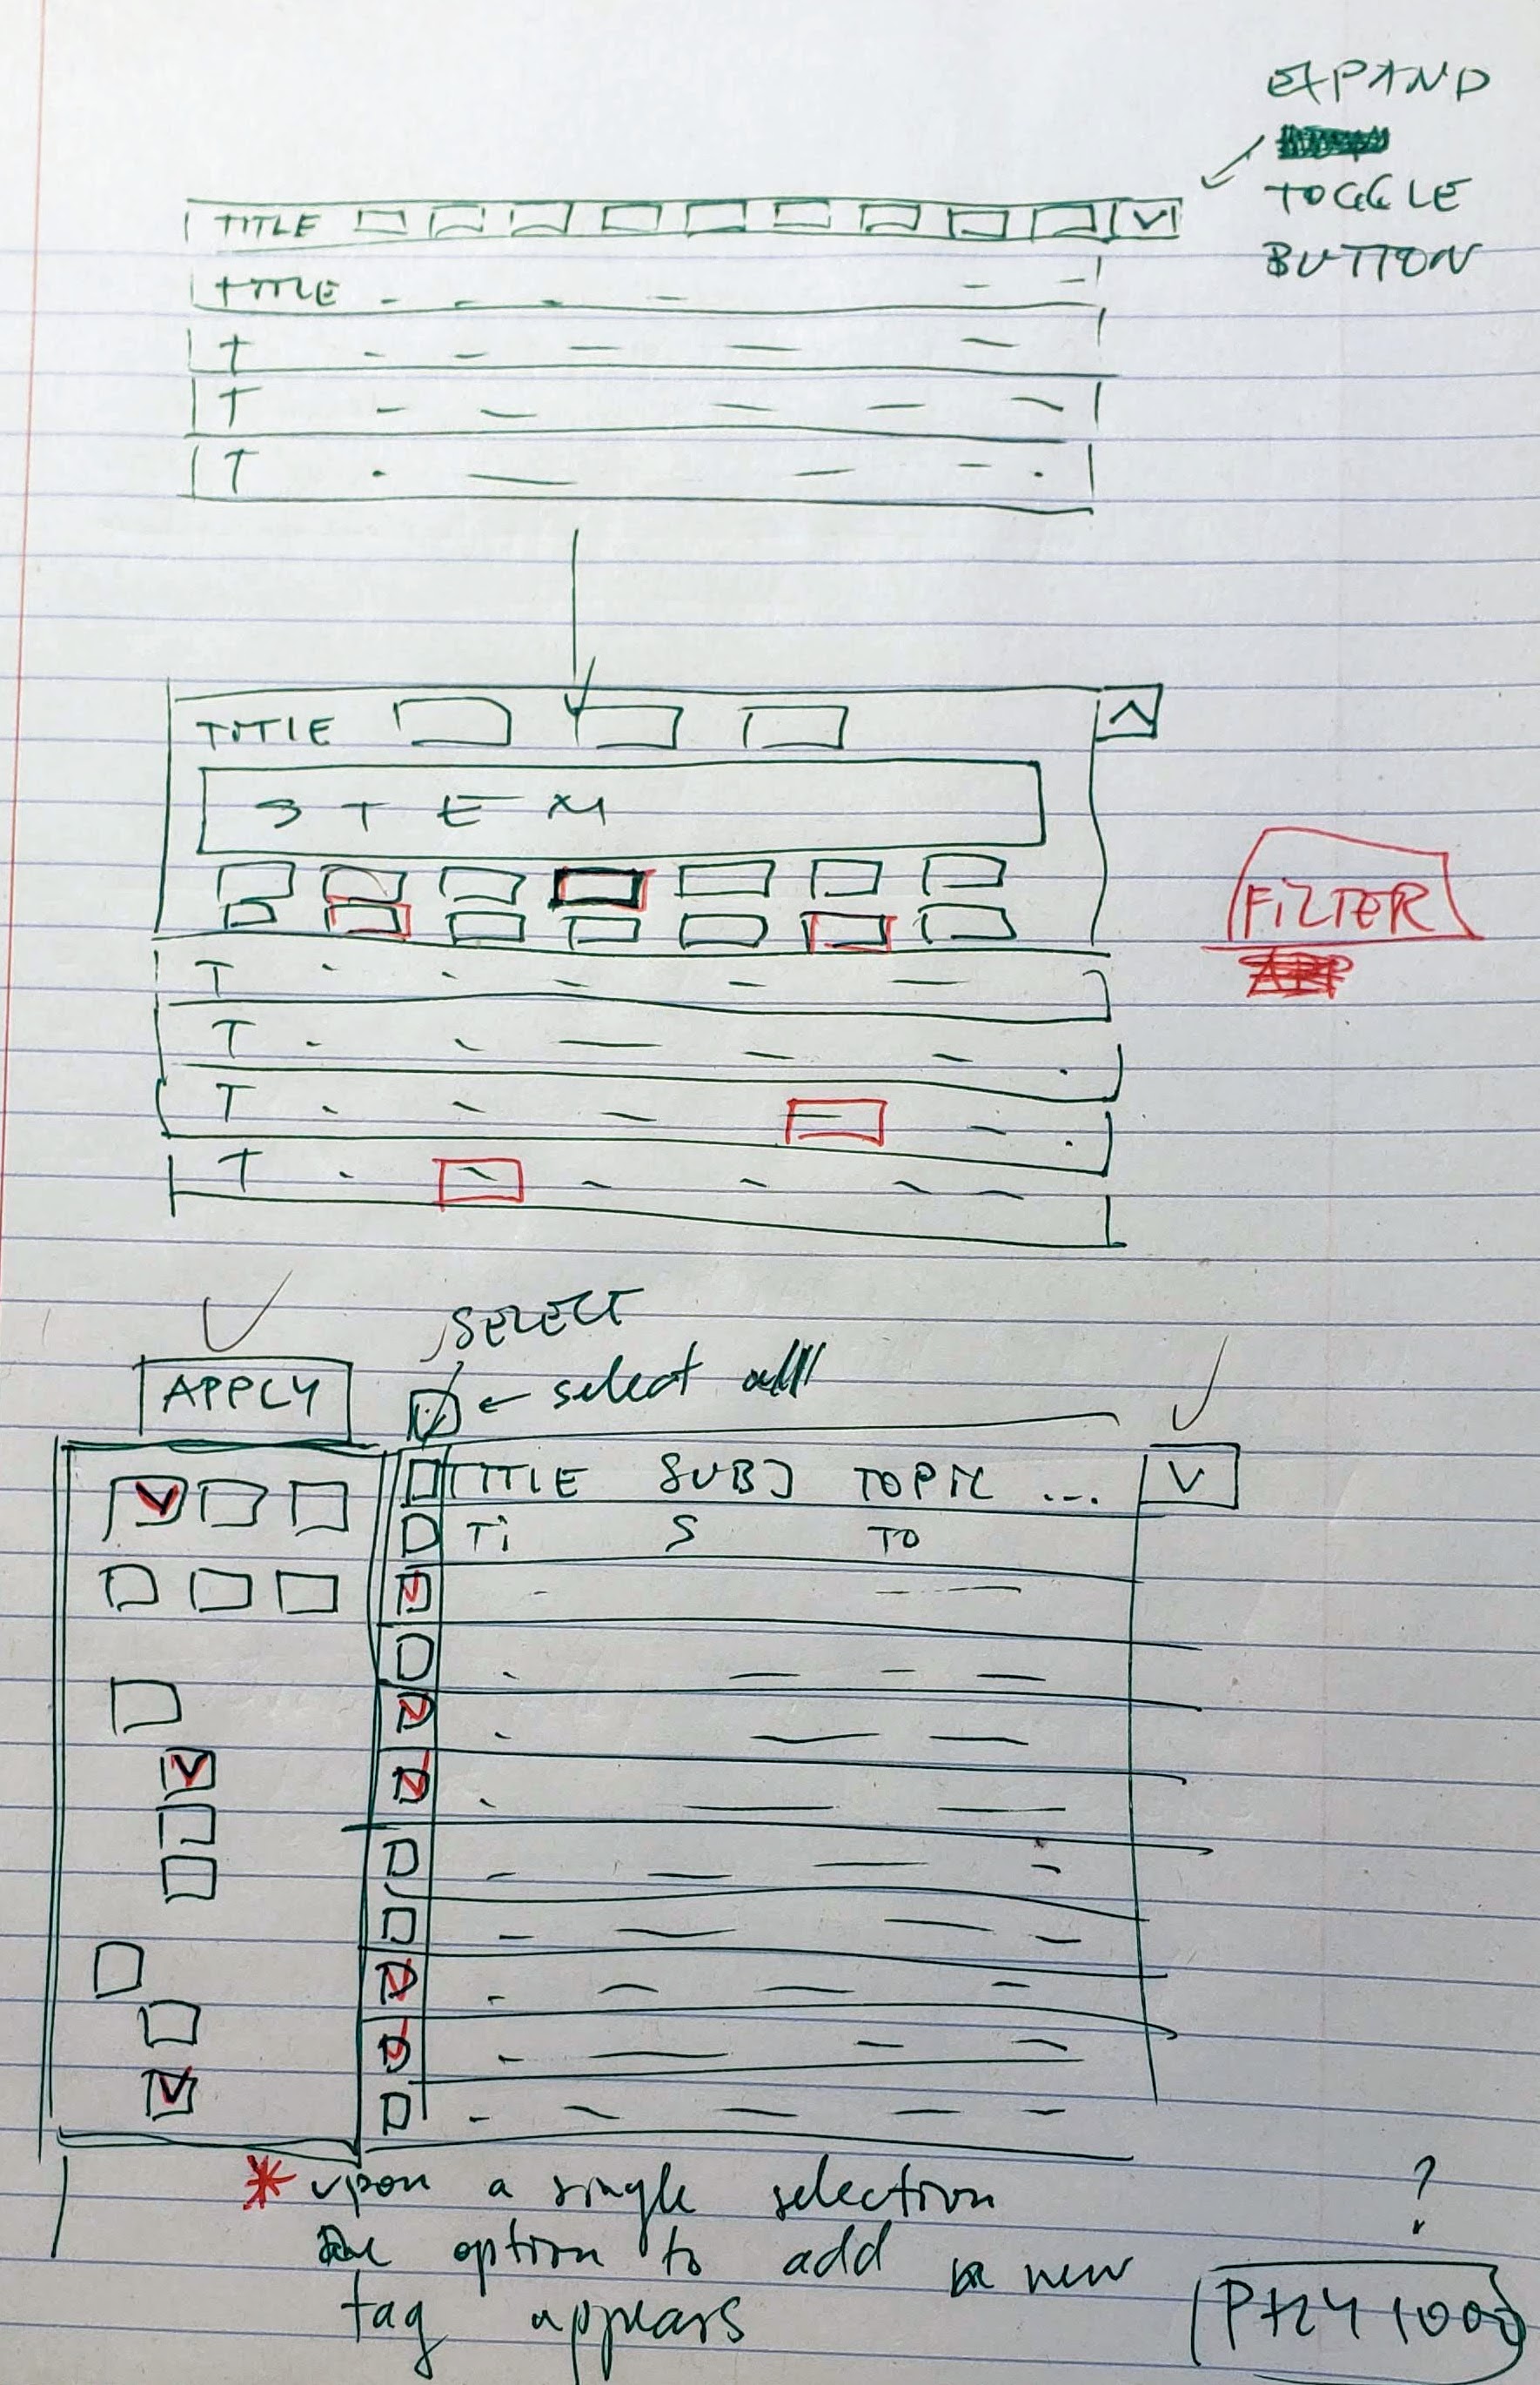 EXPAND
TOGGLE
BUTTON
TITLE
TITLE
T
T
T
TITLE
STEM
FILTER
T
T
T
T
SELECT
select all
APPLY
TITLE SUBJ TOPIC ...
Ti S To
* upon a single selection
option to add a new
tag appears
?